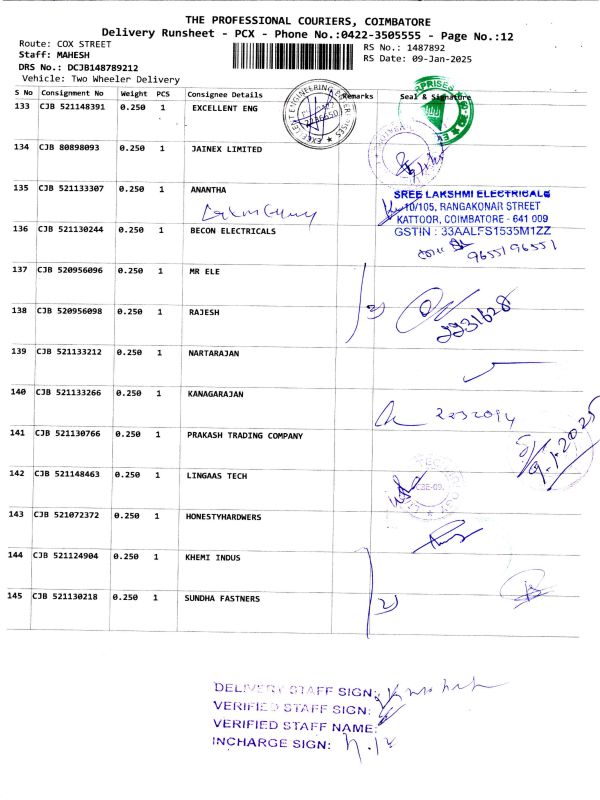 THE PROFESSIONAL COURIERS, COIMBATORE
Delivery Runsheet - PCX - Phone No.:0422-3505555 - Page No.:12
Route: COX STREET
RS No.: 1487892
Staff: MAHESH
RS Date: 09-Jan-2025
DRS No.: DCJB148789212
Vehicle: Two Wheeler Delivery
S No Consignment No Weight PCS Consignee Details Remarks Seal & Signature
133 CJB 521148391 0.250 1 EXCELLENT ENG
134 CJB 80898093 0.250 1 JAINEX LIMITED
135 CJB 521133307 0.250 1 ANANTHA
SREE LAKSHMI ELECTRICALS
10/105, RANGAKONAR STREET
KATTOOR, COIMBATORE - 641 009
GSTIN : 33AALFS1535M1ZZ
136 CJB 521130244 0.250 1 BECON ELECTRICALS
9655196551
137 CJB 520956096 0.250 1 MR ELE
138 CJB 520956098 0.250 1 RAJESH
2231628
139 CJB 521133212 0.250 1 NARTARAJAN
140 CJB 521133266 0.250 1 KANAGARAJAN
141 CJB 521130766 0.250 1 PRAKASH TRADING COMPANY
9.1.2025
142 CJB 521148463 0.250 1 LINGAAS TECH
143 CJB 521072372 0.250 1 HONESTYHARDWERS
144 CJB 521124904 0.250 1 KHEMI INDUS
145 CJB 521130218 0.250 1 SUNDHA FASTNERS
DELIVERY STAFF SIGN:
VERIFIED STAFF SIGN:
VERIFIED STAFF NAME:
INCHARGE SIGN: